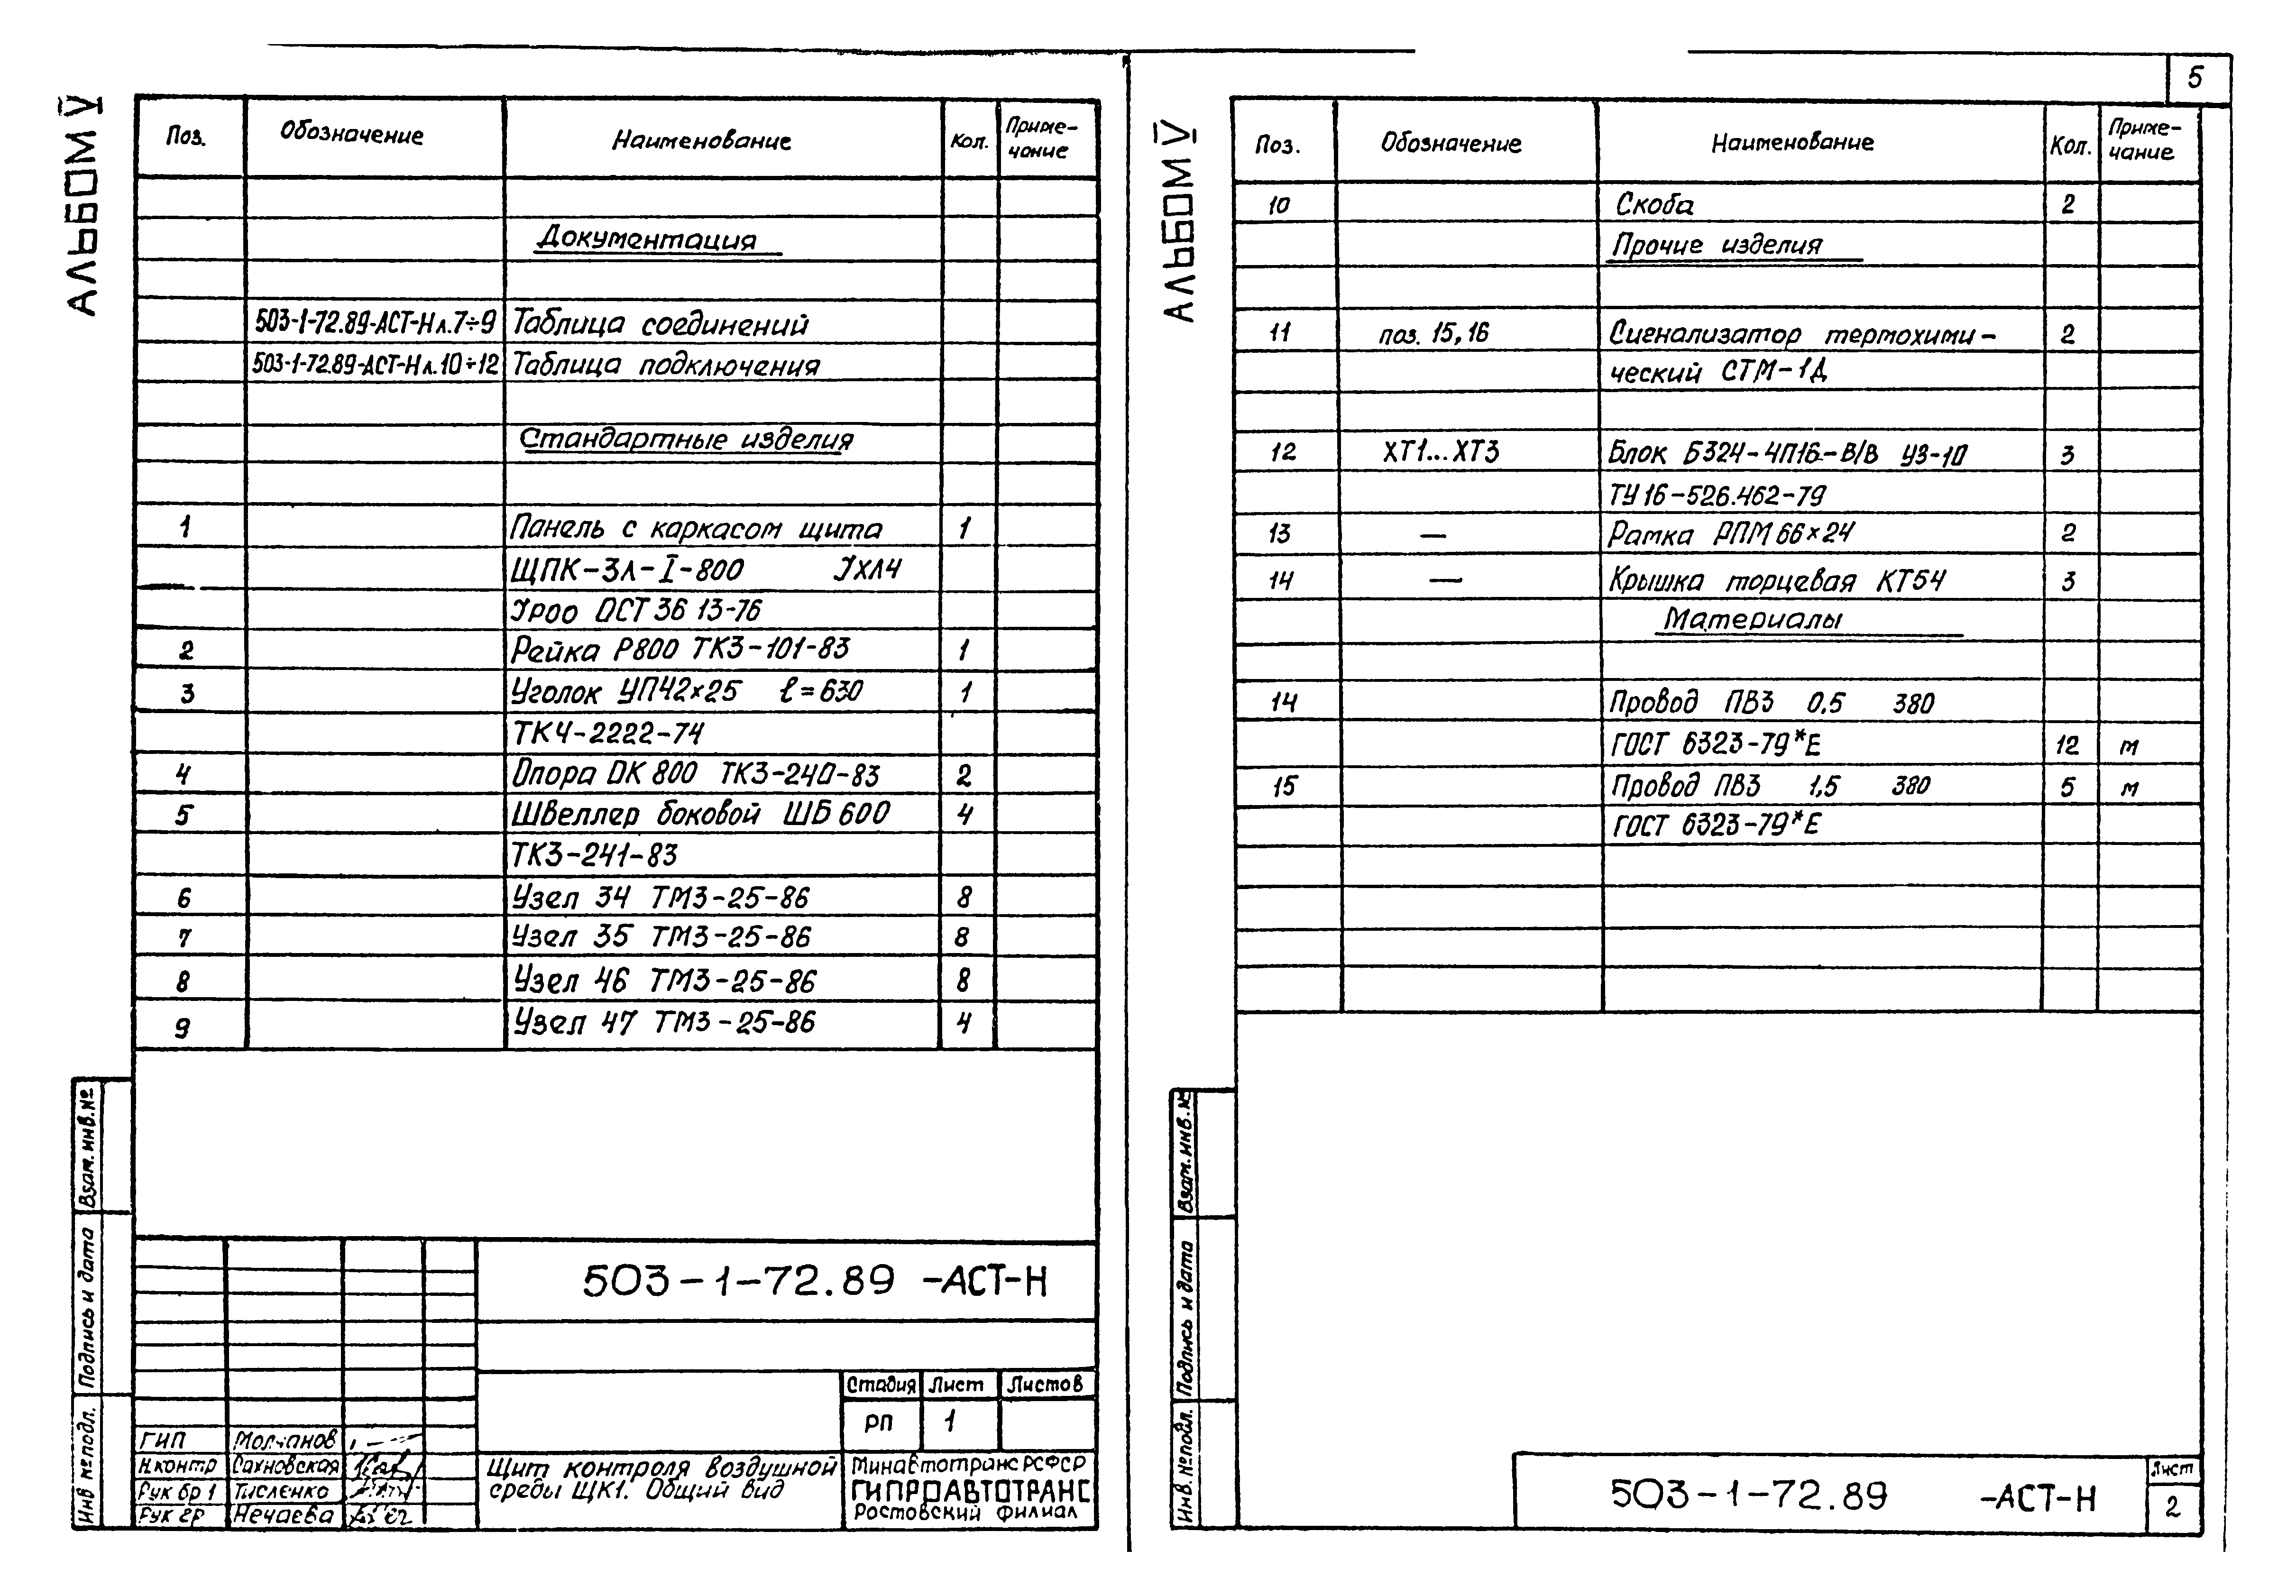 АЛЬБОМ V
Поз. Обозначение Наименование Кол. Приме-
чание
Документация
503-1-72.89-АСТ-Н л.7÷9 Таблица соединений
503-1-72.89-АСТ-Н л.10÷12 Таблица подключения
Стандартные изделия
1 Панель с каркасом щита 1
ЩПК-3Л-I-800 УХЛ4
УР00 ОСТ 36 13-76
2 Рейка Р800 ТК3-101-83 1
3 Уголок УП42×25 ℓ=630 1
ТК4-2222-74
4 Опора ОК 800 ТК3-240-83 2
5 Швеллер боковой ШБ 600 4
ТК3-241-83
6 Узел 34 ТМ3-25-86 8
7 Узел 35 ТМ3-25-86 8
8 Узел 46 ТМ3-25-86 8
9 Узел 47 ТМ3-25-86 4
Взам. инв. №
Подпись и дата
Инв № подл.
503-1-72.89 -АСТ-Н
Стадия Лист Листов
РП 1
ГИП Молчанов
Н.контр Сахновская
Рук бр 1 Тисленко
Рук гр Нечаева
Щит контроля воздушной
среды ЩК1. Общий вид
Минавтотранс РСФСР
ГИПРОАВТОТРАНС
Ростовский филиал
5
АЛЬБОМ V
Поз. Обозначение Наименование Кол. Приме-
чание
10 Скоба 2
Прочие изделия
11 поз. 15,16 Сигнализатор термохими- 2
ческий СТМ-1Д
12 ХТ1...ХТ3 Блок Б324-4П16-В/В У3-10 3
ТУ 16-526.462-79
13 — Рамка РПМ 66×24 2
14 — Крышка торцевая КТ54 3
Материалы
14 Провод ПВ3 0,5 380
ГОСТ 6323-79*Е 12 м
15 Провод ПВ3 1,5 380 5 м
ГОСТ 6323-79*Е
Взам. инв. №
Подпись и дата
Инв. № подл.
503-1-72.89 -АСТ-Н
Лист
2